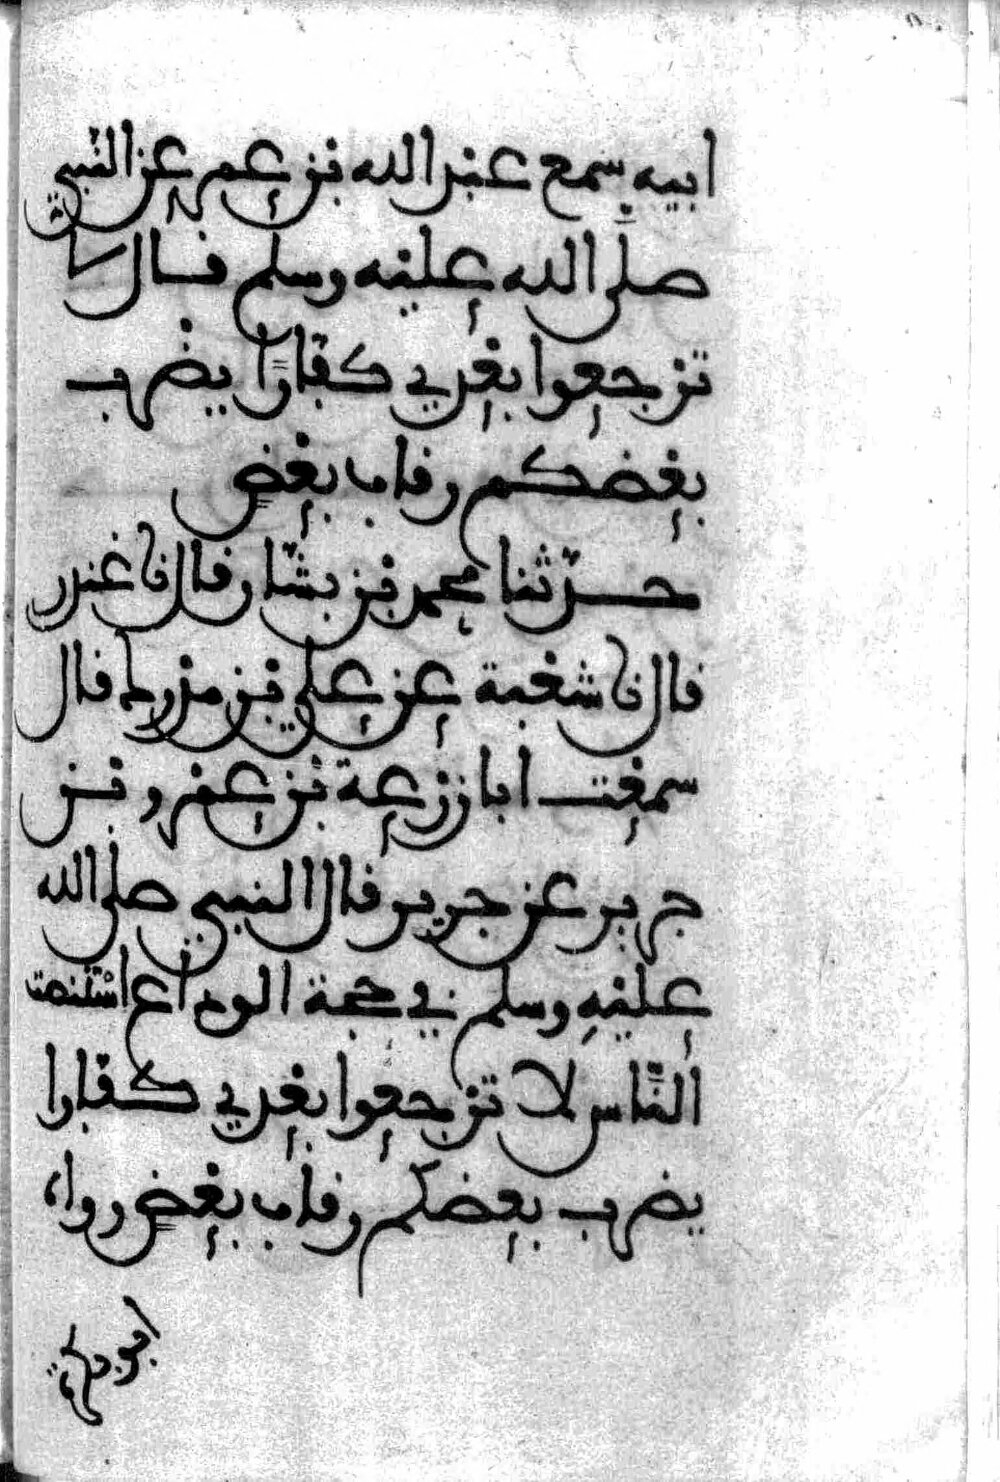 ابيه سمع عبد الله بن عمر عن النبي
صلى الله عليه وسلم قال لا
ترجعوا بعدي كفارا يضرب
بعضكم رقاب بعض
حدثنا محمد بن بشار قال نا غندر
قال نا شعبة عن علي بن مدرك قال
سمعت ابا زرعة بن عمرو بن
جرير عن جرير قال النبي صلى الله
عليه وسلم في حجة الوداع استنصت
الناس لا ترجعوا بعدي كفارا
يضرب بعضكم رقاب بعض رواه